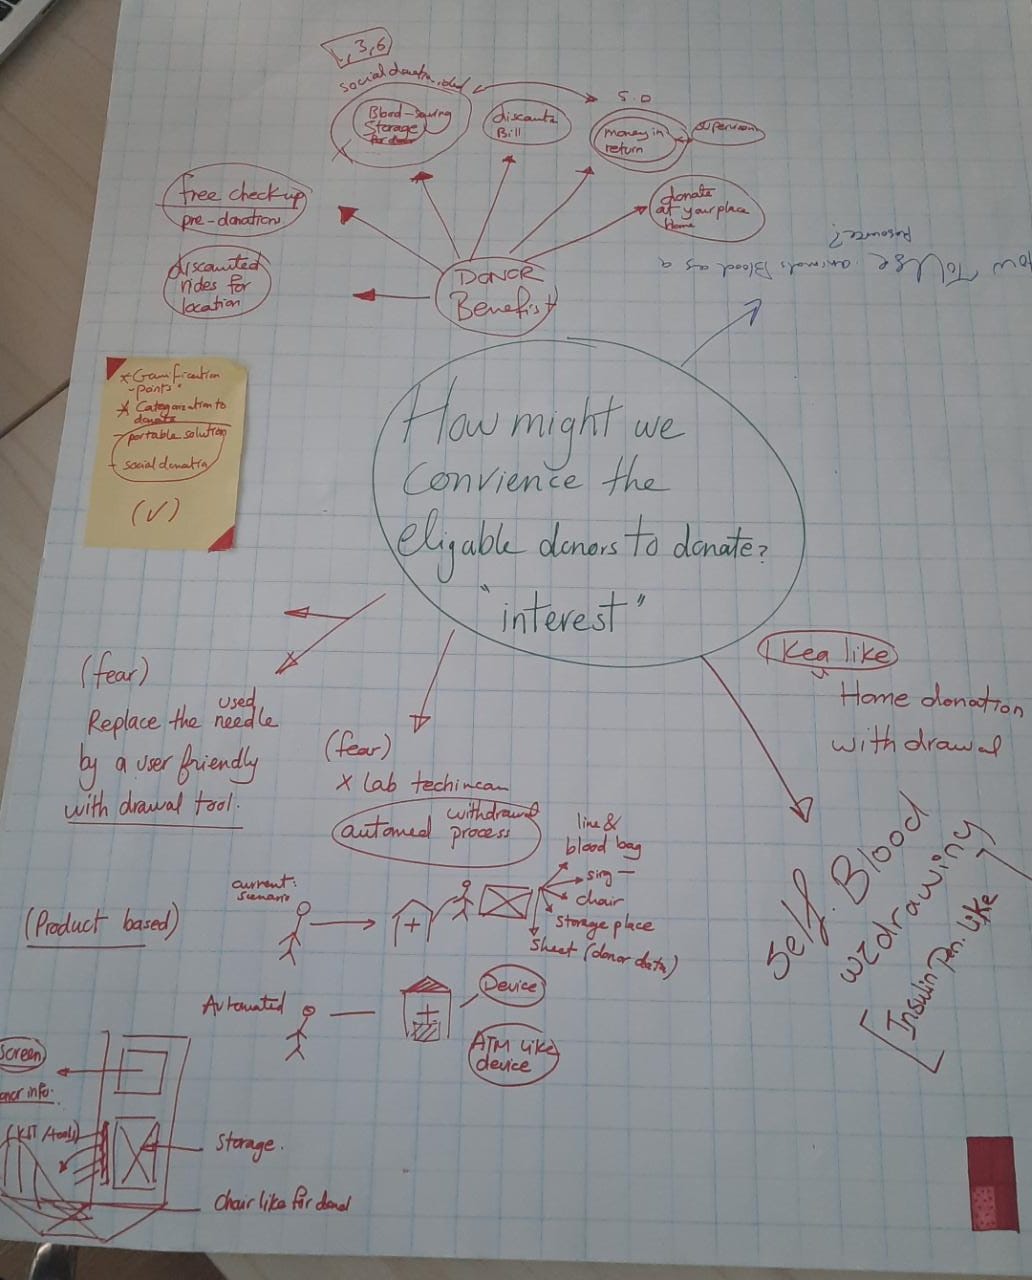 1, 3, 6
social donation
Blood-saving
Storage
discounts
Bill
5.0
money in
return
donate
at your place
Home
free check up
pre-donation
discounted
rides for
location
DONOR
Benefist
How To Use animals Blood as a
Resource?
* Gamification
- points"
* Categorization to
donate
- portable solution
- social donatia
(✓)
How might we
convience the
eligable donors to donate?
"interest"
Ikea like
Home donation
with drawal
(fear)
Replace the used needle
by a user friendly
with drawal tool.
(fear)
X Lab techincan
automed withdrawal
process
line &
blood bag
sirg —
chair
storage place
sheet (donor data)
current:
scenario
(Product based)
Automated
Device
ATM Like
device
Self. Blood
widrawing
[Insulin pen. like]
Screen
info.
(KIT/tools)
Storage.
Chair like for donal